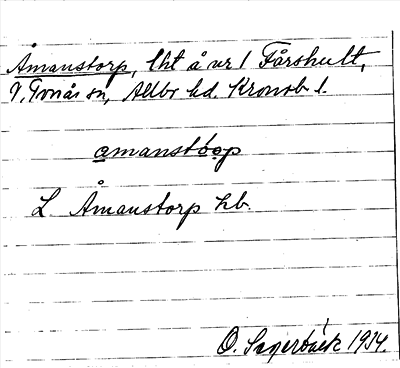 Åmanstorp, lht å nr 1 Fårshult,
V. Torsås sn, Allbo hd. Kronob l.
amanstóp
L Åmanstorp hb.
O. Sagerbäck 1934.